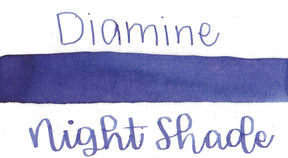 Diamine
Night Shade